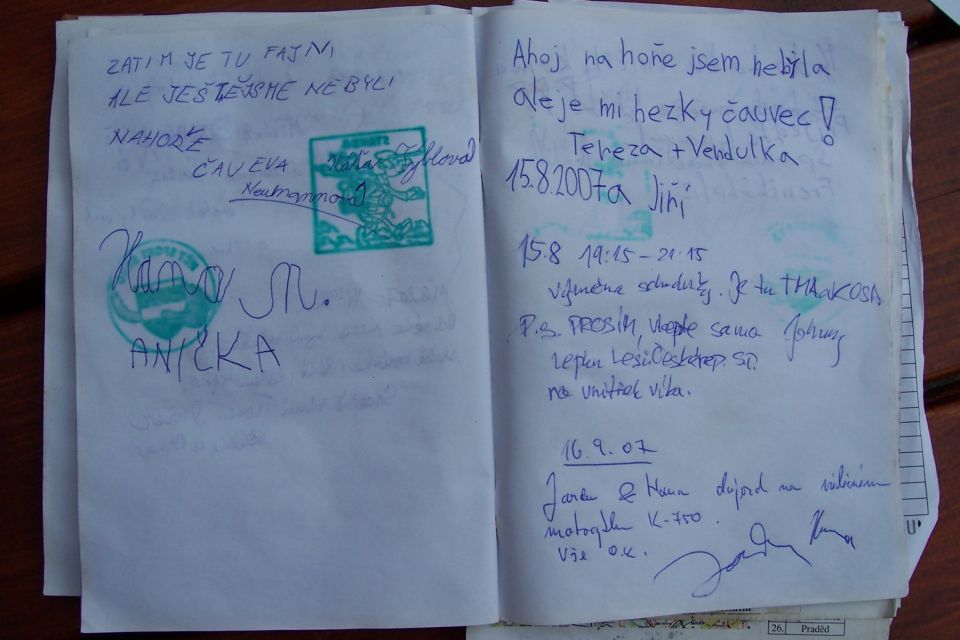 ZATIM JE TU FAJNI
ALE JEŠTĚJSME NEBYLI
NAHOŘE
ČAU EVA
Neumannová
Káťa Fyblová
Hana M.
ANIČKA
Ahoj na hoře jsem nebyla
ale je mi hezky čauvec!
Tereza + Vendulka
15.8.2007 a Jiří
15.8 19:15 - 21:15
výměna Je tu TMA a KOSA
P.S. PROSÍM, vlepte
Lesů České rep. SP.
na vnitřek víka.
16.9.07
Jarda & Hana na válečném
motocyklu K-750.
Vše O.K.
Jarda Hana
U
26. Praděd